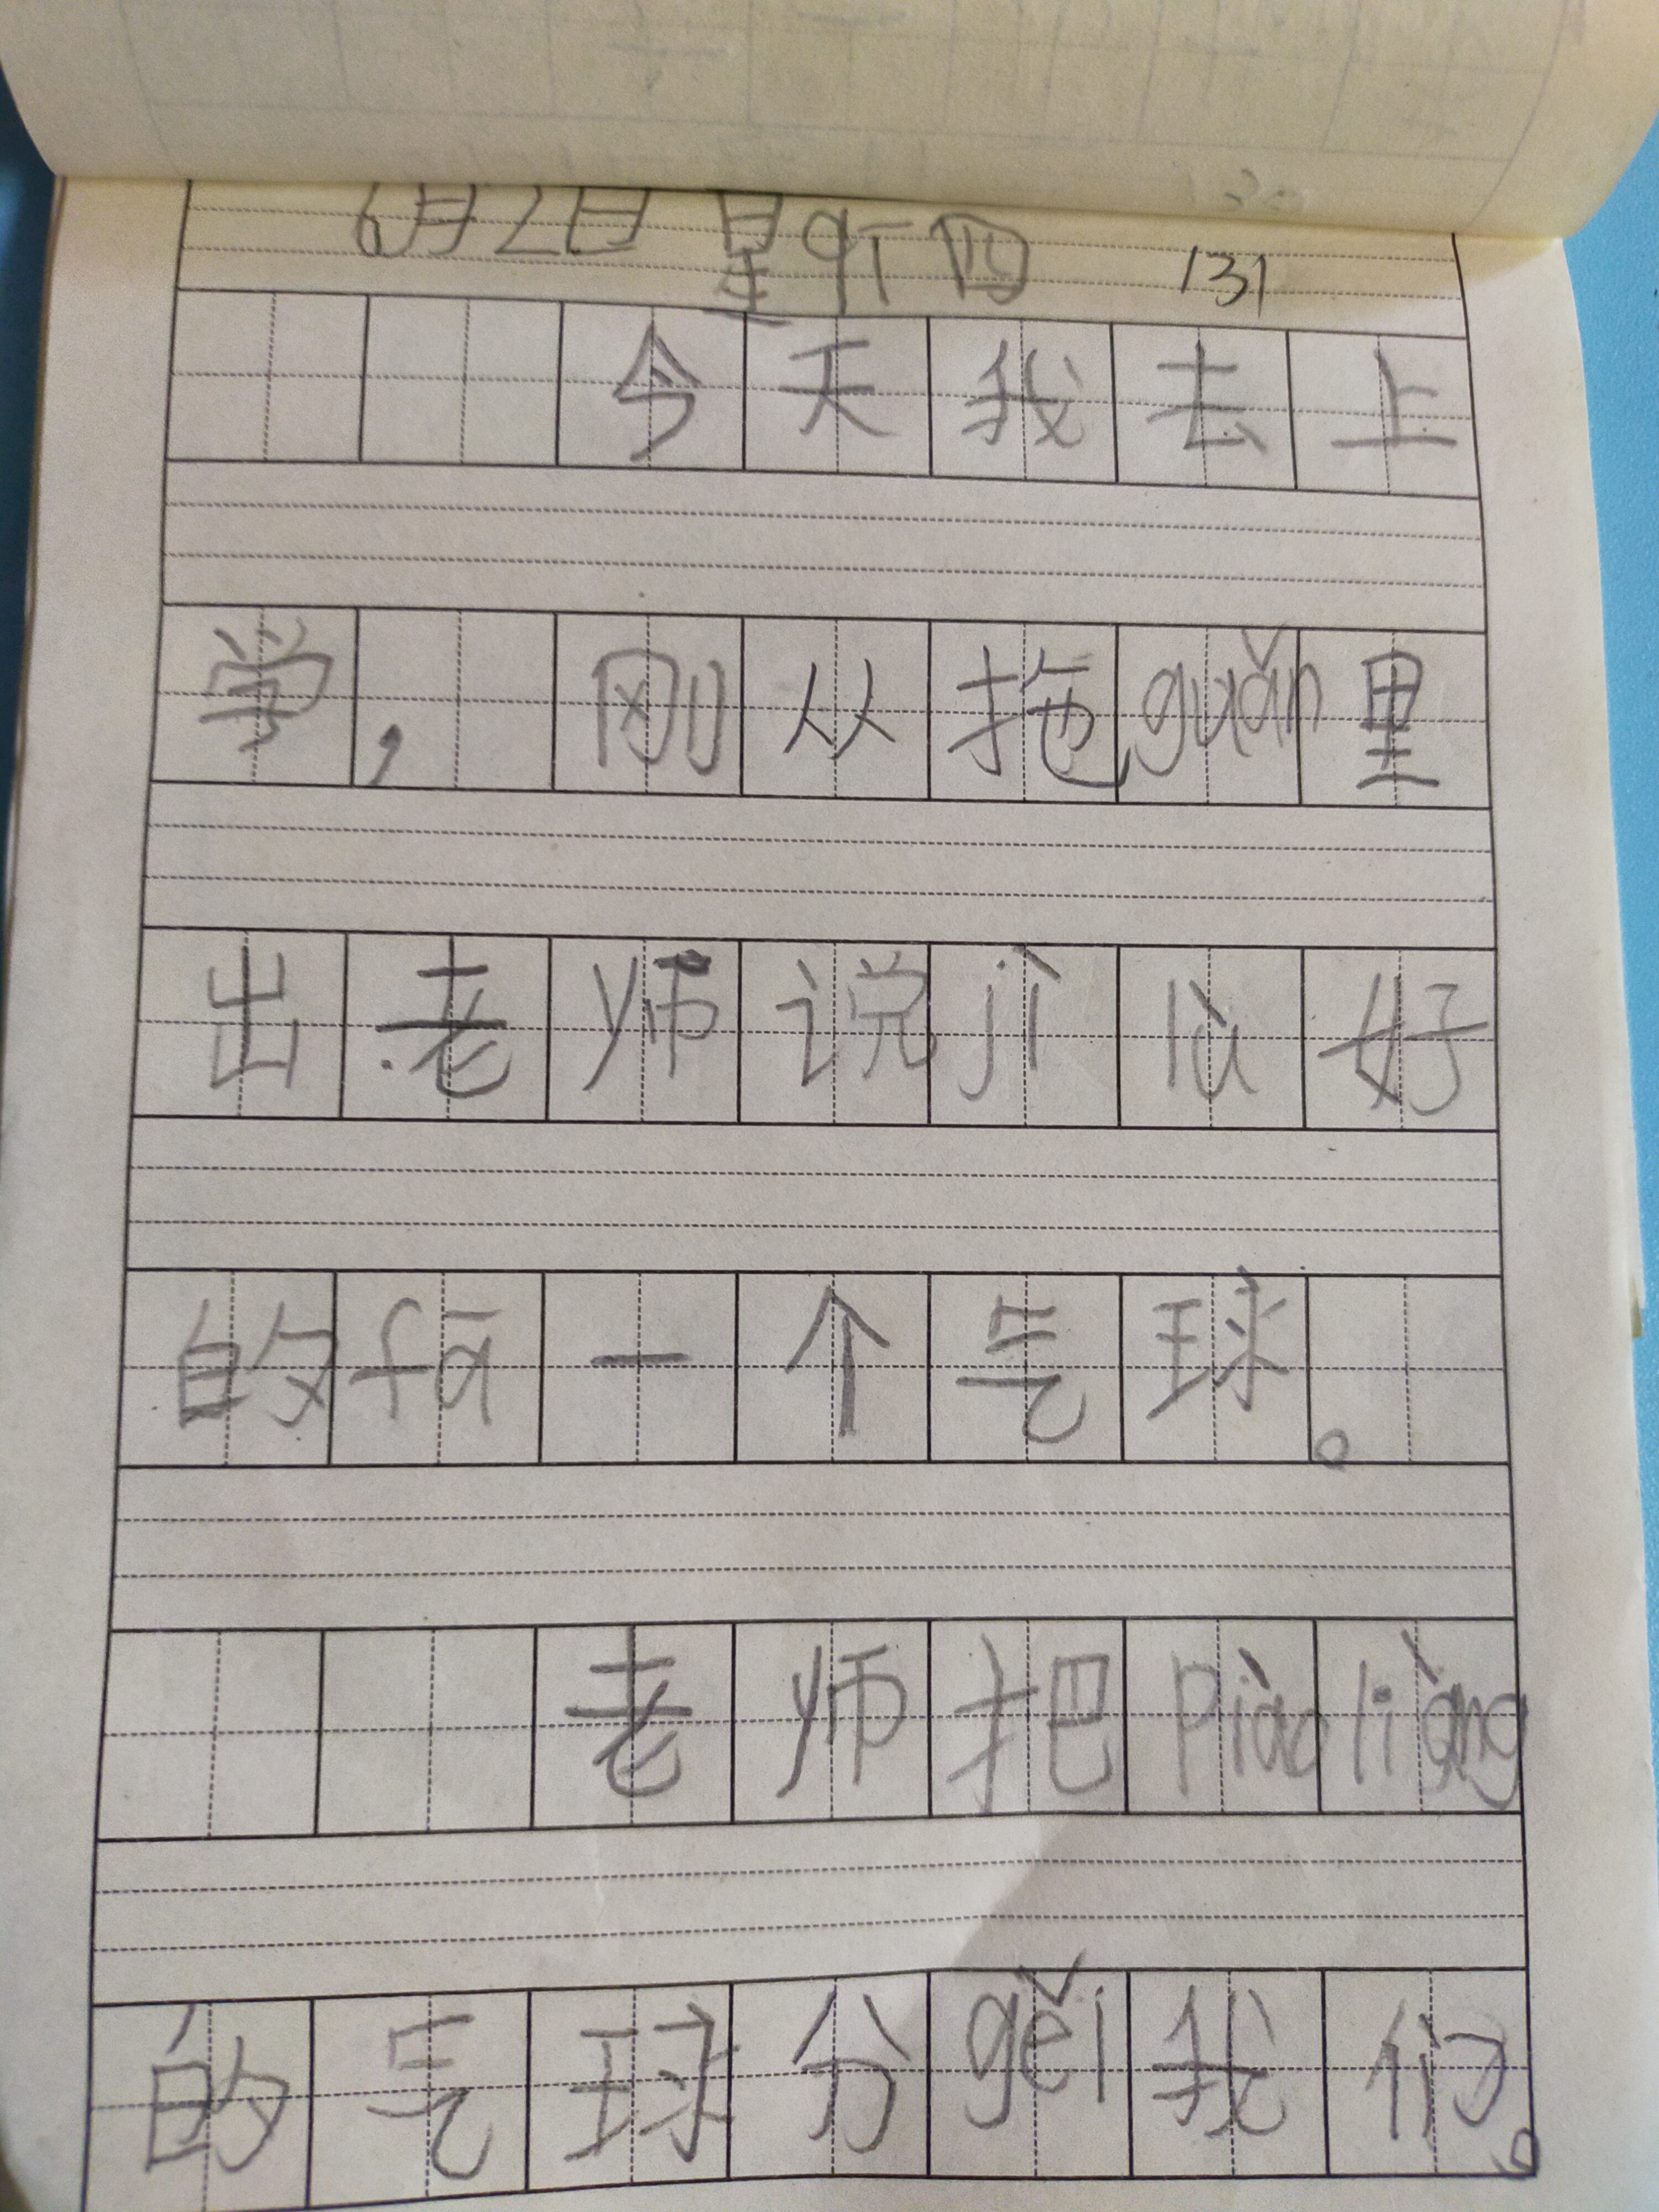 6月2日 星qī四 131
今天我去上
学，刚从拖guǎn里
出老师说jì lǜ好
的fā一个气球。
老师把Piào liàng
的气球分gěi我们。